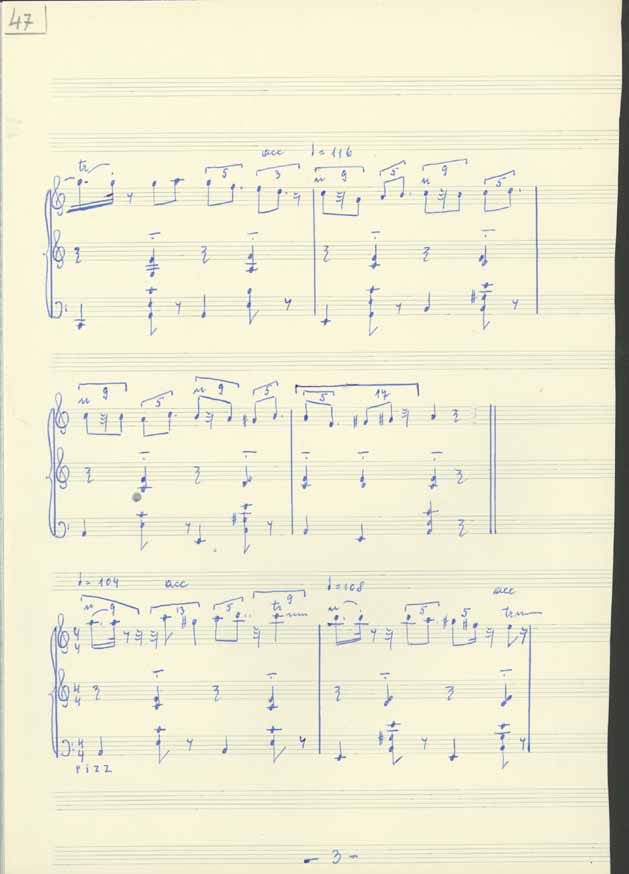 47
tr
acc ♩= 116
5 3 9 5 9 5
9 5 9 5 5 17
♩= 104 acc ♩=108 acc
9 13 5 tr 9 5 5 tr
4 4
4 4
4 4
PIZZ
- 3 -